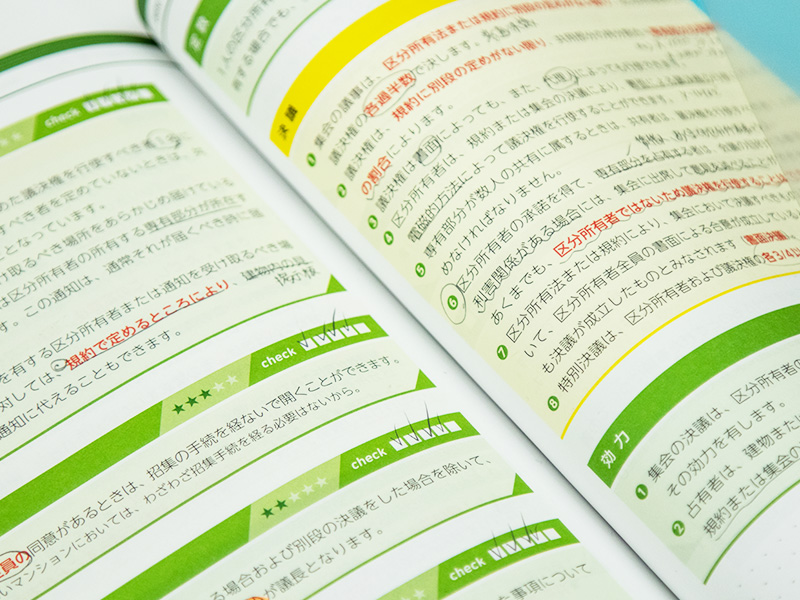 check
めた議決権を行使すべき
すべき者を定めていないときは、
となっています。
け取るべき場所をあらかじめ届けている
は区分所有者の所有する専有部分が所在す
す。この通知は、通常それが届くべき時に
を有する区分所有者または通知を受け取るべき
対しては、規約で定めるところにより、建物内の
通知に代えることもできます。
check
同意があるときは、招集の手続を経ないで開くことができます。
いマンションにおいては、わざわざ招集手続を経る必要はないから。
check
る場合および別段の決議をした場合を除いて、
が議長となります。
check
た事項について
1人の区分所有
有する場合でも、
決議
❶ 集会の議事は、区分所有法または規約に別段の定めがない
議決権の各過半数で決します。
❷ 議決権は、規約に別段の定めがない限り、
の割合によります。
❸ 議決権は書面によっても、また、代理人によっても行使
❹ 区分所有者は、規約または集会の決議により、
電磁的方法によって議決権を行使することができます。
❺ 専有部分が数人の共有に属するときは、共有者は、
めなければなりません。
❻ 区分所有者の承諾を得て、専有部分を占有する者は、
利害関係がある場合には、集会に出席して
あくまでも、区分所有者ではないため議決権を行使することは
❼ 区分所有法または規約により、集会において決議すべき
いて、区分所有者全員の書面による合意が成立している
も決議が成立したものとみなされます
❽ 特別決議は、区分所有者および議決権の各3/4以
効力
❶ 集会の決議は、区分所有者の
その効力を有します。
❷ 占有者は、建物または
規約または集会の